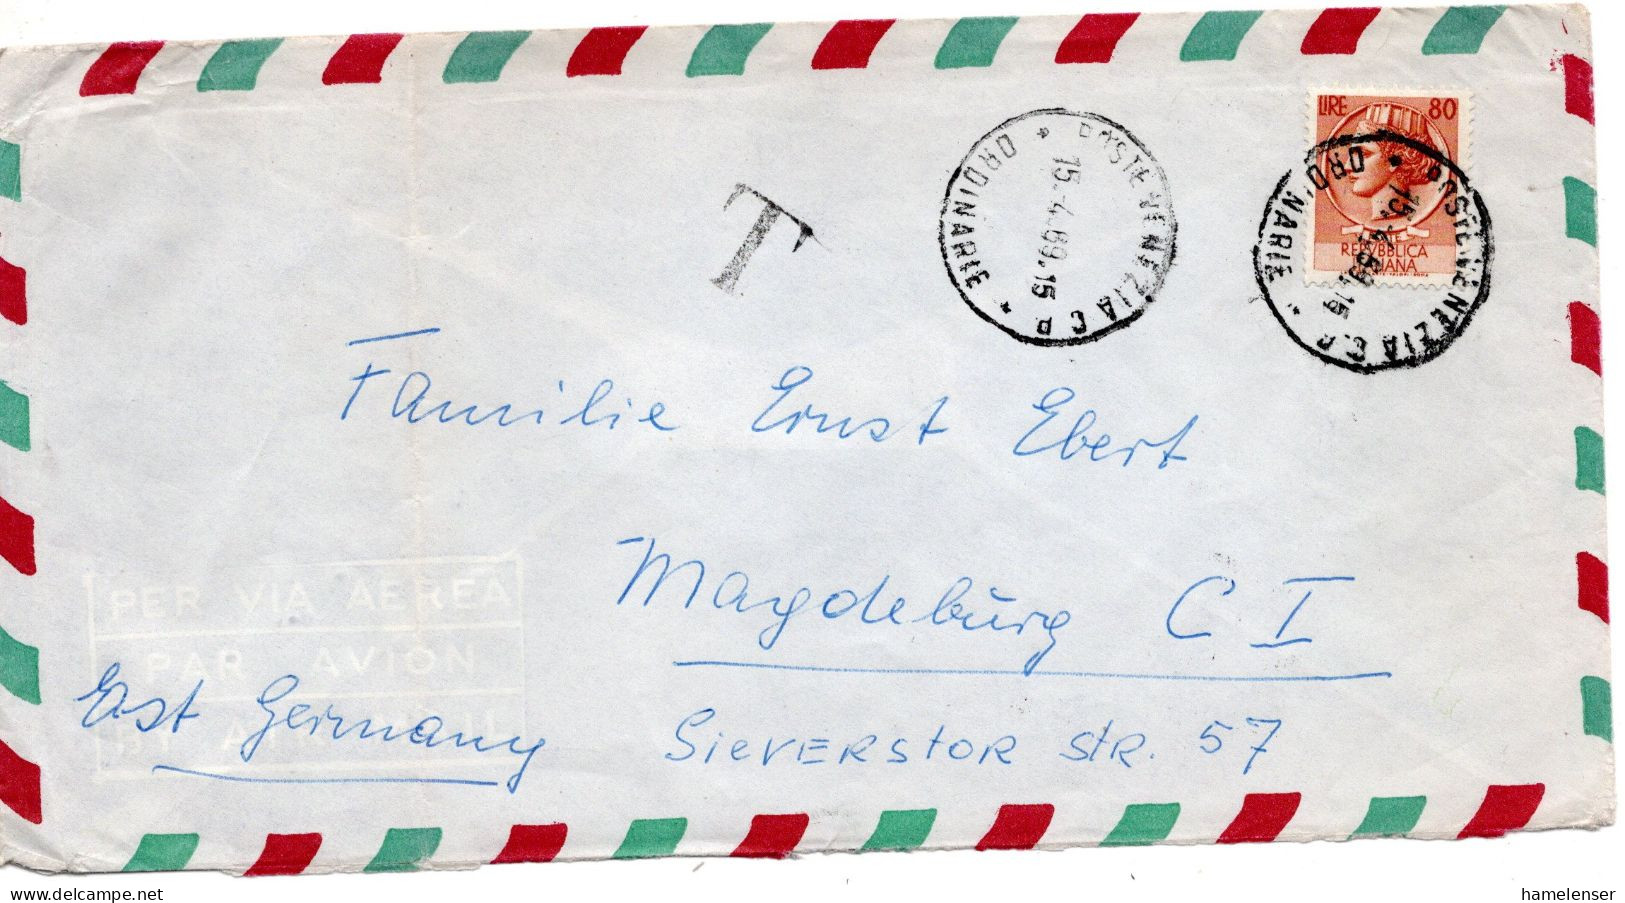 LIRE 80
REPVBBLICA
POSTE VENEZIA C.P.
* ORDINARIE *
15.-4.69.15
POSTE VENEZIA C.P.
* ORDINARIE *
15.-4.69.15
T
Familie Ernst Ebert
Magdeburg C I
Sieverstor str. 57
East Germany
PER VIA AEREA
PAR AVION
hamelenser
delcampe.net